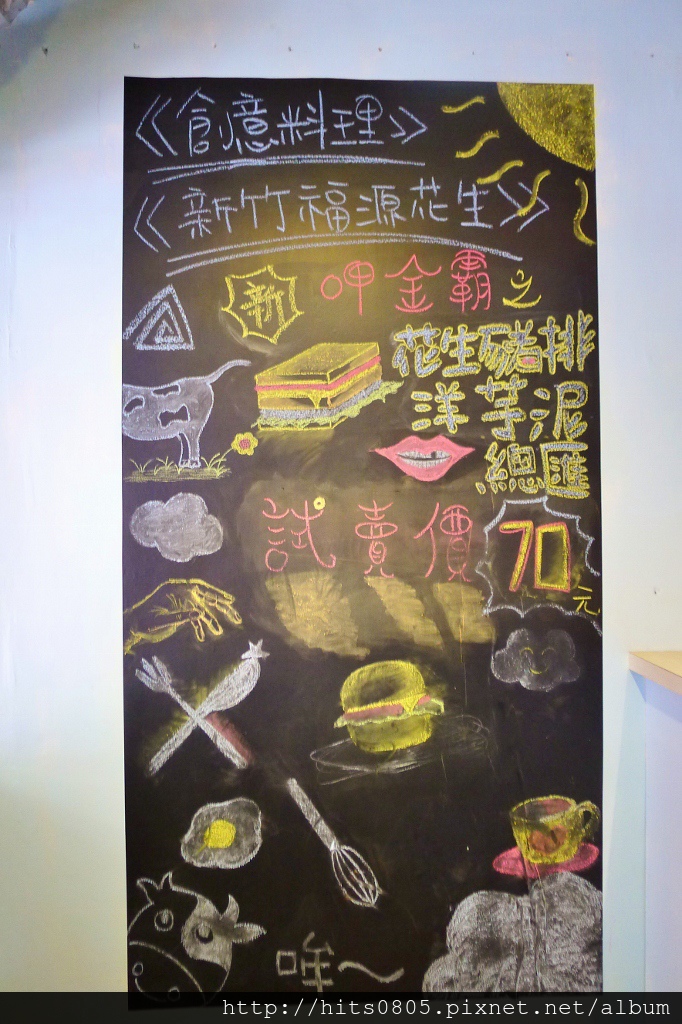 《創意料理》
《新竹福源花生》
新 呷金霸之
花生豬排
洋芋泥
總匯
試賣價 70元
哞~
http://hits0805.pixnet.net/album